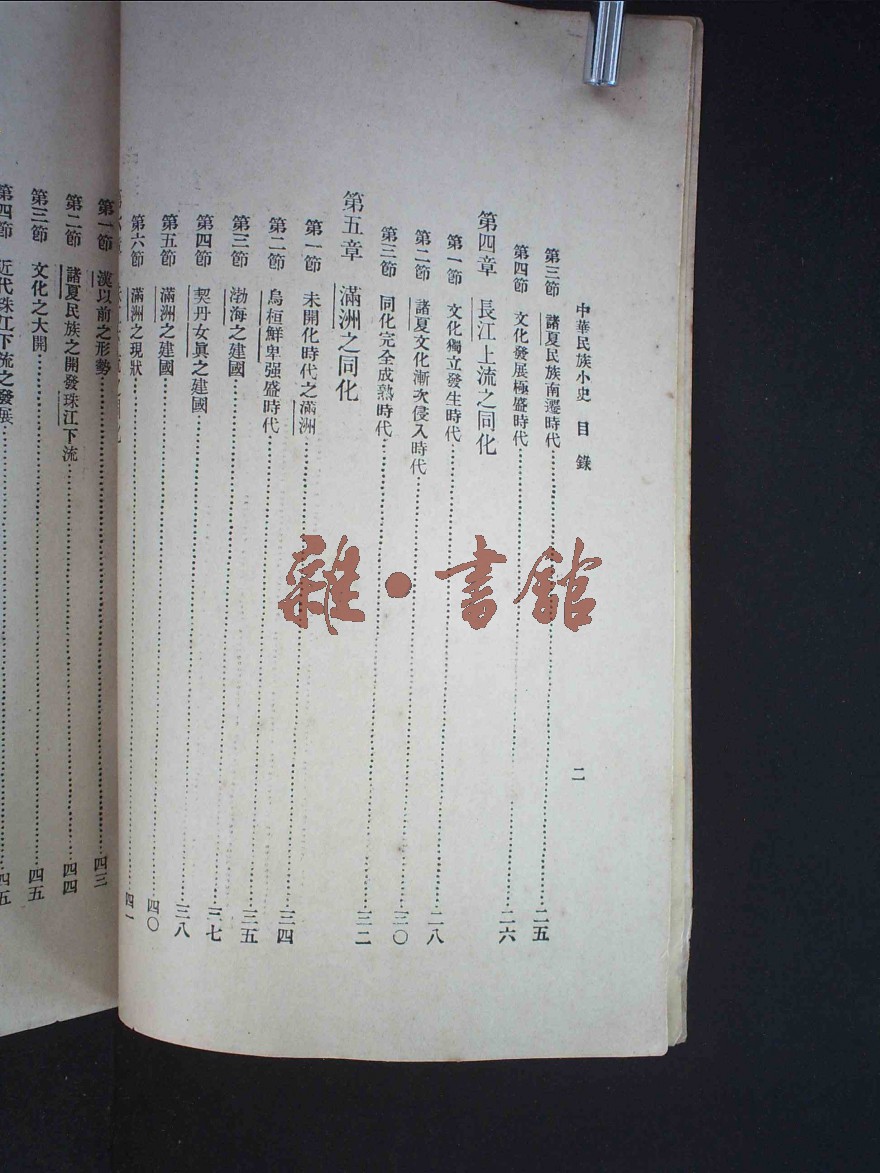 中華民族小史 目錄 二
第三節 諸夏民族南遷時代……二五
第四節 文化發展極盛時代……二六
第四章 長江上流之同化
第一節 文化獨立發生時代……二八
第二節 諸夏文化漸次侵入時代……三〇
第三節 同化完全成熟時代……三二
第五章 滿洲之同化
第一節 未開化時代之滿洲……三四
第二節 烏桓鮮卑强盛時代……三五
第三節 渤海之建國……三七
第四節 契丹女眞之建國……三八
第五節 滿洲之建國……四〇
第六節 滿洲之現狀……四一
第一節 漢以前之形勢……四三
第二節 諸夏民族之開發珠江下流……四四
第三節 文化之大開……四五
第四節 近代珠江下流之發展……
雜·書館